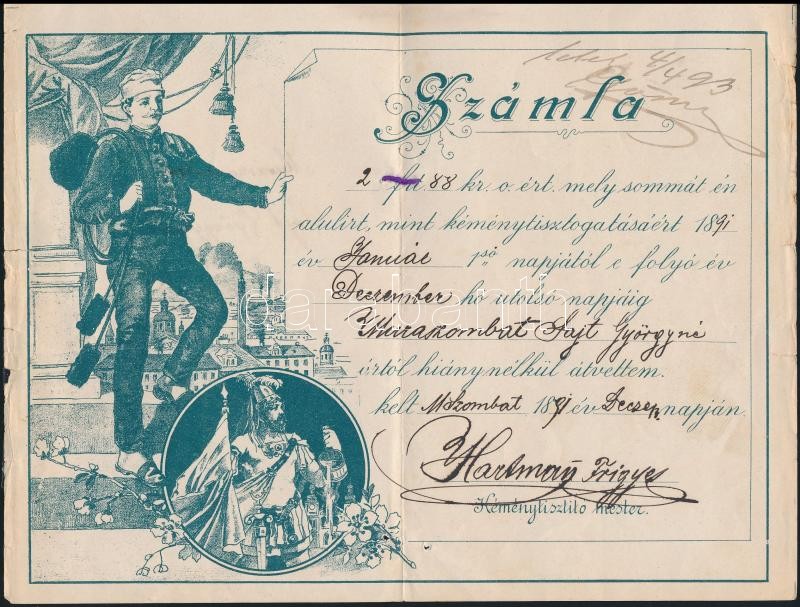 4/4 93
Számla
2 frt 88 kr. o. ért. mely sommát én
alulirt, mint kéménytisztogatásáért 1891
év Januar 1ső napjától e folyó év
Deczember hó utolsó napjáig
Muraszombat Sajt Györgyné
úrtól hiány nélkül átvettem.
kelt MSzombat 1891 év Decze napján.
Hartmann Frigyes
Kéménytisztító mester.
darabanth